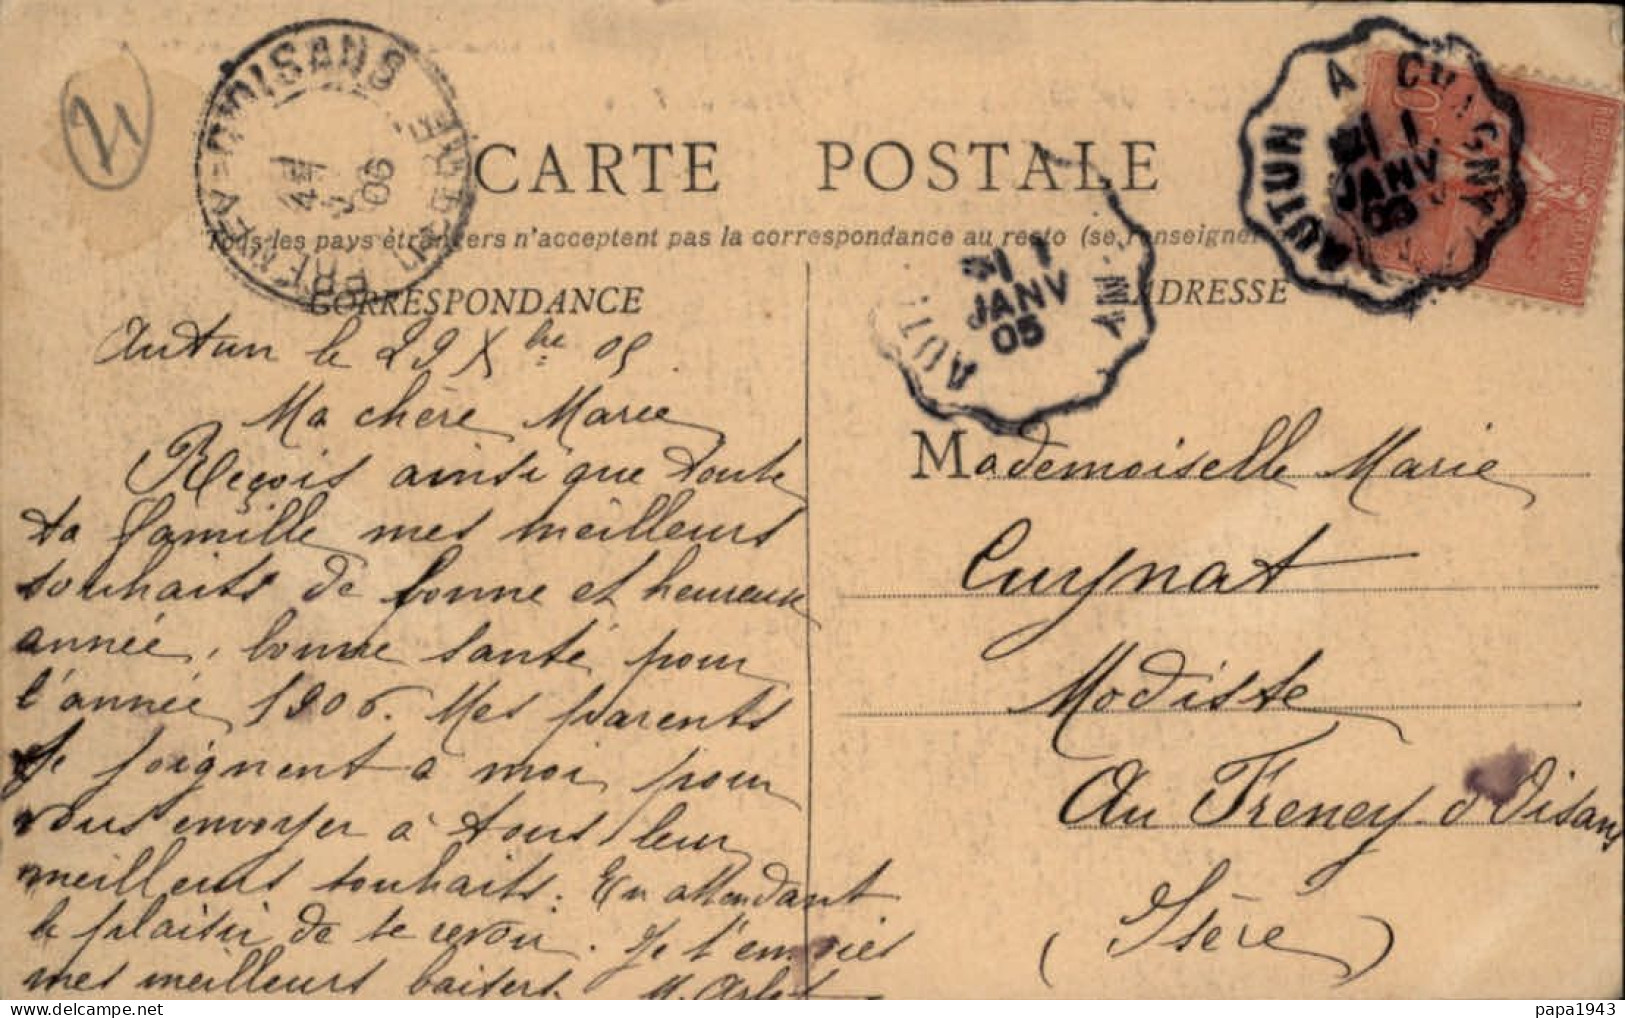 21
FRENEY-D'OISANS
ISERE
06
AUTUN A CHAGNY
1
JANV
05
10
CARTE POSTALE
Tous les pays étrangers n'acceptent pas la correspondance au recto (se renseigner
1
JANV
05
AUT
CORRESPONDANCE
ADRESSE
Autun le 29 Xbre 05
Ma chère Marie
Reçois ainsi que toute
ta famille mes meilleurs
souhaits de bonne et heureuse
année, bonne santé pour
l'année 1906. Mes parents
se joignent à moi pour
vous envoyer à tous leur
meilleurs souhaits. En attendant
le plaisir de te revoir. Je t'envoies
mes meilleurs baisers.
Mademoiselle Marie
Cuynat
Modiste
Au Freney d'Oisans
(Isère)
papa1943